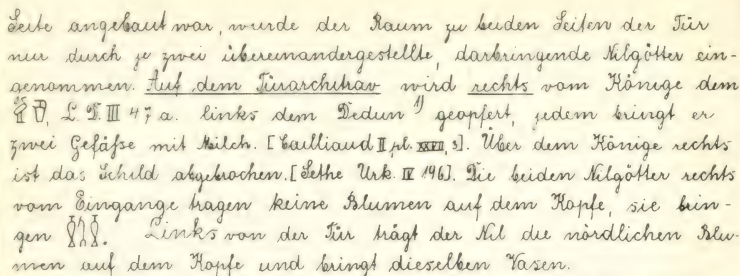 Seite angebaut war, wurde der Raum zu beiden Seiten der Tür
nur durch je zwei übereinandergestellte, darbringende Nilgötter ein-
genommen. Auf dem Türarchitrav wird rechts vom Könige dem
L. D. III 47 a. links dem Dedun 1) geopfert, jedem bringt er
zwei Gefäße mit Milch. [Cailliaud II, pl. 3]. Über dem Könige rechts
ist das Schild abgebrochen. [Sethe Urk. IV 196]. Die beiden Nilgötter rechts
vom Eingange tragen keine Blumen auf dem Kopfe, sie brin-
gen . Links von der Tür trägt der Nil die nördlichen Blu-
men auf dem Kopfe und bringt dieselben Vasen.